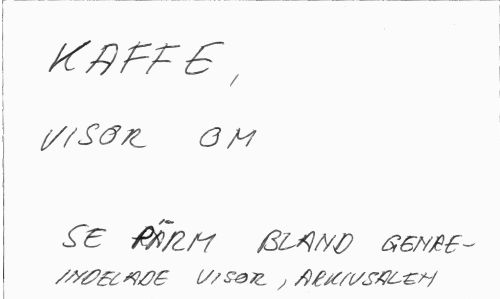 KAFFE,
VISOR OM
SE PÄRM BLAND GENRE-
INDELADE VISOR, ARKIVSALEN